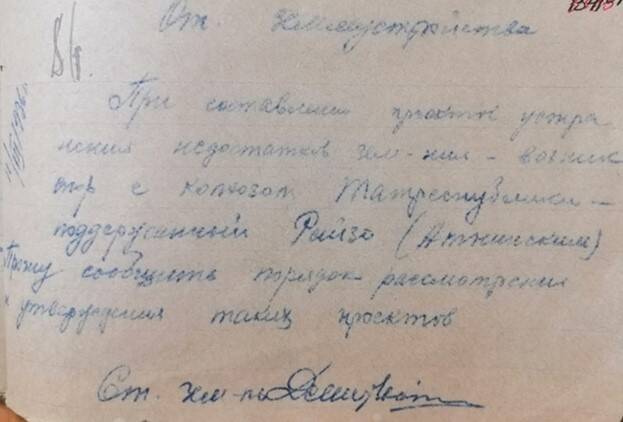 От. Землеустройства
При составлении проекта устра
нения недостатков зем-ния - возник
спор с колхозом Татреспублики -
поддержанный Райзо (Атнинским)
Прошу сообщить порядок рассмотрения
и утверждения таких проектов
Ст. зем-р